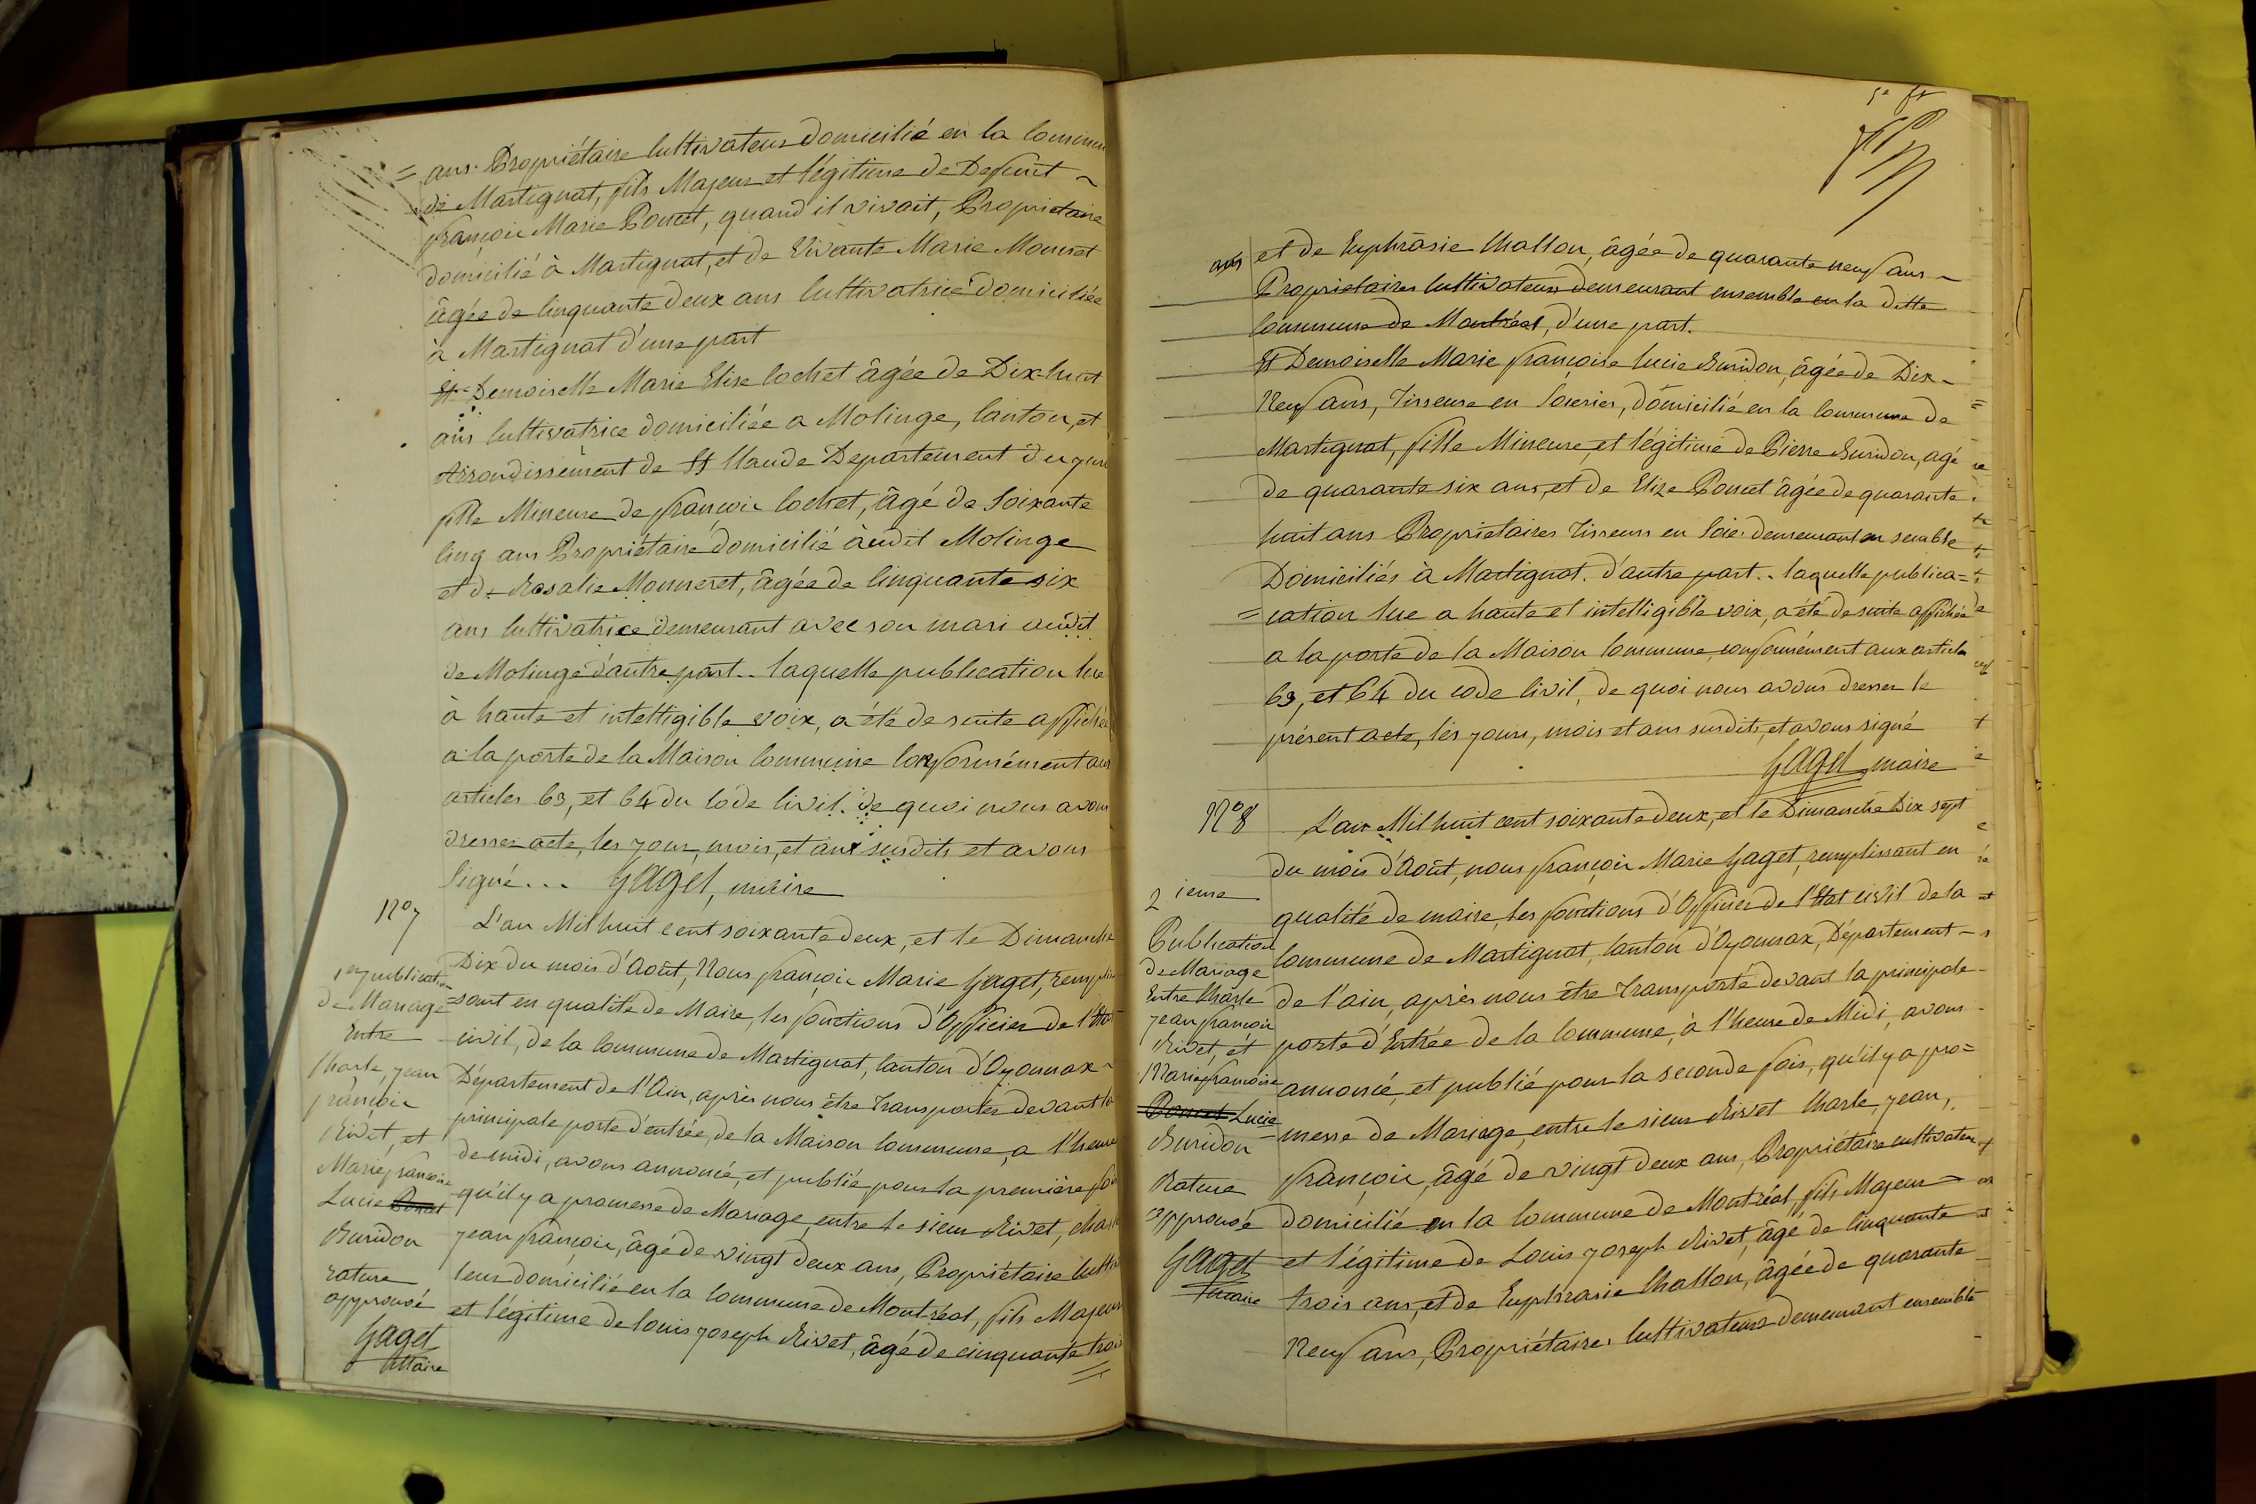 = ans. Propriétaire Cultivateur domicilié en la Commun
de Martignat, fils Majeur et légitime de Defunt ~
françois Marie Poncet, quand il vivait, Proprietaire
domicilié à Martignat, et de Vivante Marie Monnet
âgée de Cinquante deux ans Cultivatrice domiciliée
à Martignat d'une part
Et Demoiselle Marie Elise Cochet âgée de Dix-huit
ans Cultivatrice domiciliée a Molinge, Canton, et
Arrondissement de St Claude Departement du jura
fille Mineure de françois Cochet, âgé de Soixante
Cinq ans Propriétaire domicilié audit Molinge
et de Rosalie Monneret, âgée de Cinquante six
ans Cultivatrice demeurant avec son mari audit
de Molinge d'autre part.. laquelle publication lue
à haute et intelligible voix, a été de suite affichée
a la porte de la Maison Commune Conformément aux
articles 63, et 64 du Code Civil. de quoi nous avons
dresser acte, les jour, mois, et ans susdits et avons
Signé... Gaget, maire
No 7
1er publication
de Mariage
Entre
Charle, jean
françois
Rivet, et
Marie françoise
Lucie Poncet
Buridon
rature
approuvé
Gaget
Maire
L'an Mil huit cent soixante deux, et le Dimanche
Dix du mois d'Août, Nous françois Marie Gaget, remplis
=sant en qualité de Maire, les fonctions d'Officier de l'Etat
civil, de la Commune de Martignat, Canton d'Oyonnax ~
Département de l'Ain, après nous être Transporter devant la
principale porte d'entrée, de la Maison Commune, a l'heure
de midi, avons annoncé, et publié pour la première fois
qu'il y a promesse de Mariage, entre le sieur Rivet, charle
jean françois, âgé de vingt deux ans, Propriétaire Cultiva
teur domicilié en la Commune de Montréal, fils Majeur
et légitime de Louis joseph Rivet, âgé de cinquante trois
=
5e ft
ans et de Euphrasie Challon, âgée de quarante neuf ans ~
Proprietaires Cultivateurs demeurant ensemble en la ditte
Commune de Montréal, d'une part.
Et Demoiselle Marie françoise Lucie Buridon, âgée de Dix ~
Neuf ans, Tisseuse en Soieries, domicilié en la Commune de
Martignat, fille Mineure, et légitime de Pierre Buridon, agé
de quarante six ans, et de Elize Poncet âgée de quarante
huit ans Proprietaires Tisseurs en Soie demeurant en semble
Domiciliés à Martignat. d'autre part.. laquelle publica=
=cation lue a haute et intelligible voix, a été de suite affichée
a la porte de la Maison Commune, conformément aux article
63, et 64 du code Civil, de quoi nous avons dresser le
présent acte, les jours, mois et ans susdits, et avons signé
Gaget maire
No 8
2 ieme
Publication
de Mariage
Entre Charle
jean françois
Rivet, et
Marie françoise
Poncet Lucie
Buridon
Rature
approuvé
Gaget
Maire
L'an Mil huit cent soixante deux, et le Dimanche Dix sept
du mois d'Août, nous françois Marie Gaget, remplissant en
qualité de maire, les fonctions d'Officier de l'Etat civil de la
Commune de Martignat, Canton d'Oyonnax, Département -
de l'ain, après nous être Transporté devant la principale -
porte d'Entrée de la Commune, à l'heure de Midi, avons
annoncé, et publié pour la seconde fois, qu'il y a pro=
=messe de Mariage, entre le sieur Rivet Charle, jean,
françois, âgé de vingt deux ans, Propriétaire cultivateur
domicilié en la Commune de Montréal, fils Majeur
et légitime de Louis joseph Rivet, âgé de Cinquante
trois ans, et de Euphrasie Challon, âgée de quarante
Neuf ans, Propriétaires Cultivateurs demeurant ensemble